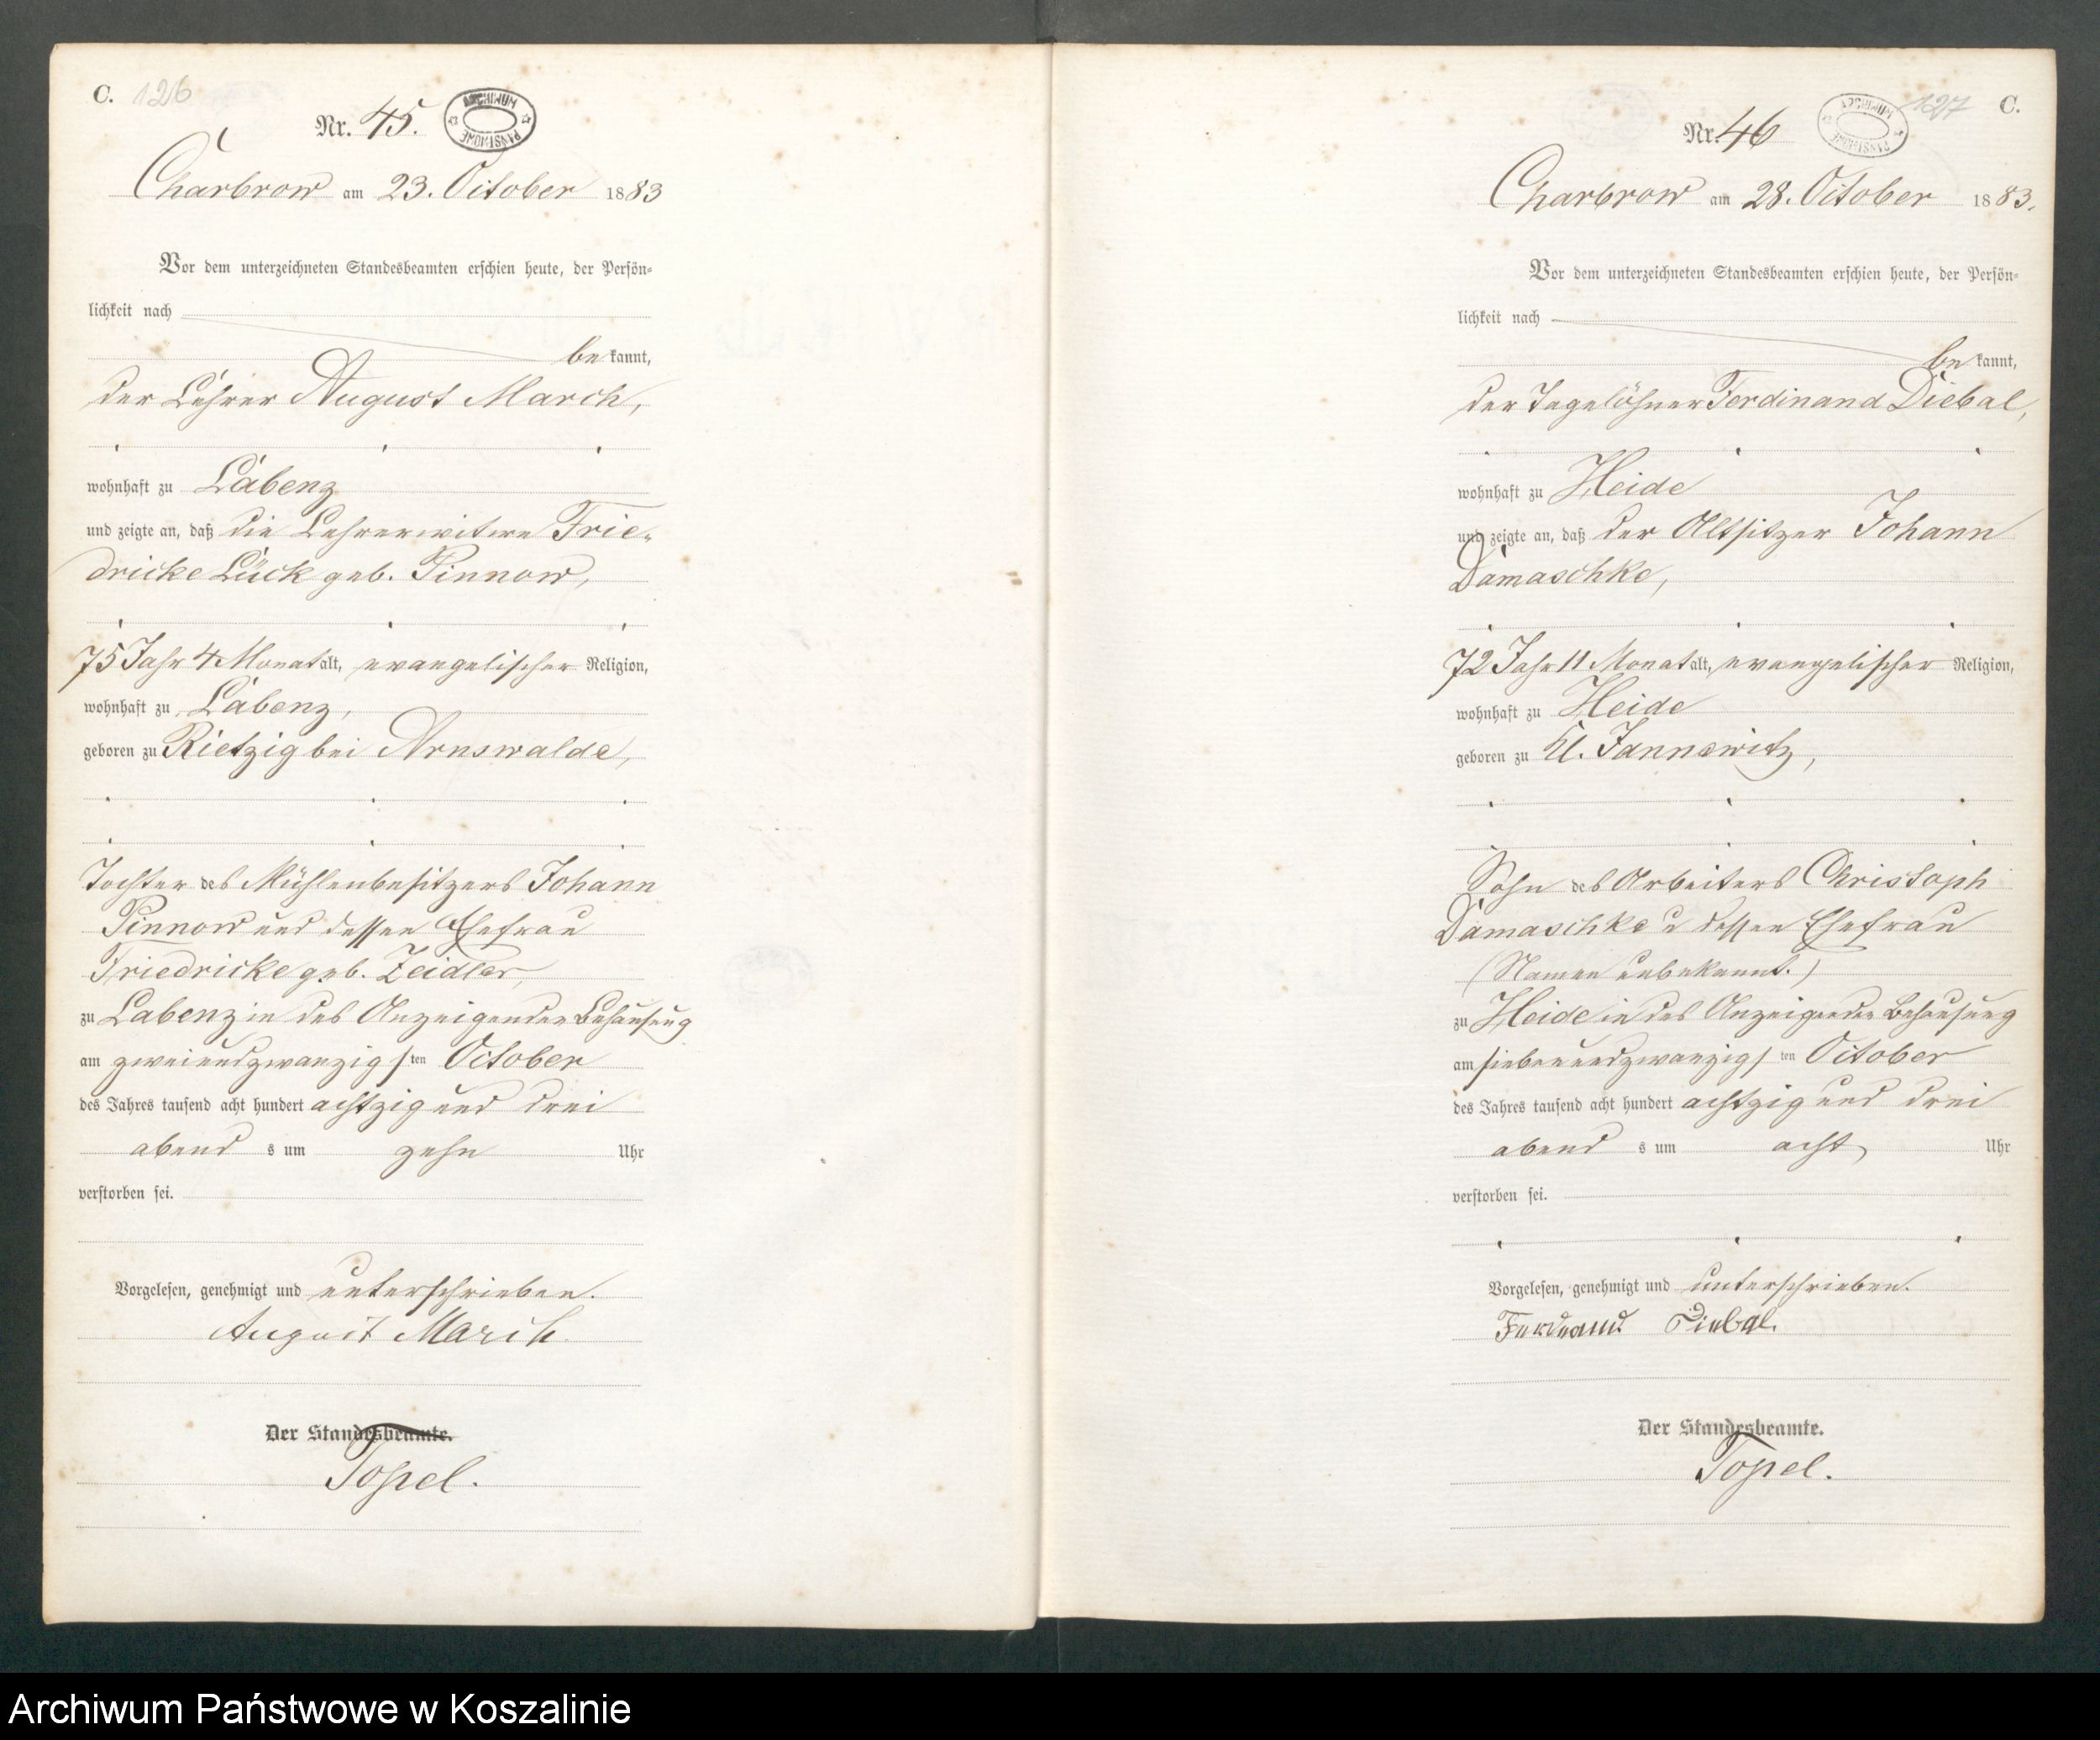 C. 126
Nr. 45.
ARCHIWUM PAŃSTWOWE
Charbrow am 23. October 1883
Vor dem unterzeichneten Standesbeamten erschien heute, der Persön=
lichkeit nach
be kannt,
der Lehrer August March,
wohnhaft zu Labenz
und zeigte an, daß die Lehrerwitwe Frie-
dricke Lück geb. Pinnow,
75 Jahr 4 Monat alt, evangelischer Religion,
wohnhaft zu Labenz,
geboren zu Rietzig bei Arnswalde,
Tochter des Mühlenbesitzers Johann
Pinnow und dessen Ehefrau
Friedricke geb. Zeidler,
zu Labenz in des Anzeigenden Behausung
am zweiundzwanzigsten October
des Jahres tausend acht hundert achtzig und drei
abend s um zehn Uhr
verstorben sei.
Vorgelesen, genehmigt und unterschrieben.
August March
Der Standesbeamte.
Topel.
127 C.
Nr. 46
ARCHIWUM PAŃSTWOWE
Charbrow am 28. October 1883.
Vor dem unterzeichneten Standesbeamten erschien heute, der Persön=
lichkeit nach
be kannt,
der Tagelöhner Ferdinand Diebal,
wohnhaft zu Heide
und zeigte an, daß der Altsitzer Johann
Damaschke,
72 Jahr 11 Monat alt, evangelischer Religion,
wohnhaft zu Heide
geboren zu Kl. Jannewitz,
Sohn des Arbeiters Christoph
Damaschke u dessen Ehefrau
(Namen unbekannt.)
zu Heide in des Anzeigenden Behausung
am siebenundzwanzigsten October
des Jahres tausend acht hundert achtzig und drei
abend s um acht Uhr
verstorben sei.
Vorgelesen, genehmigt und unterschrieben.
Ferdinand Diebal.
Der Standesbeamte.
Topel.
Archiwum Państwowe w Koszalinie